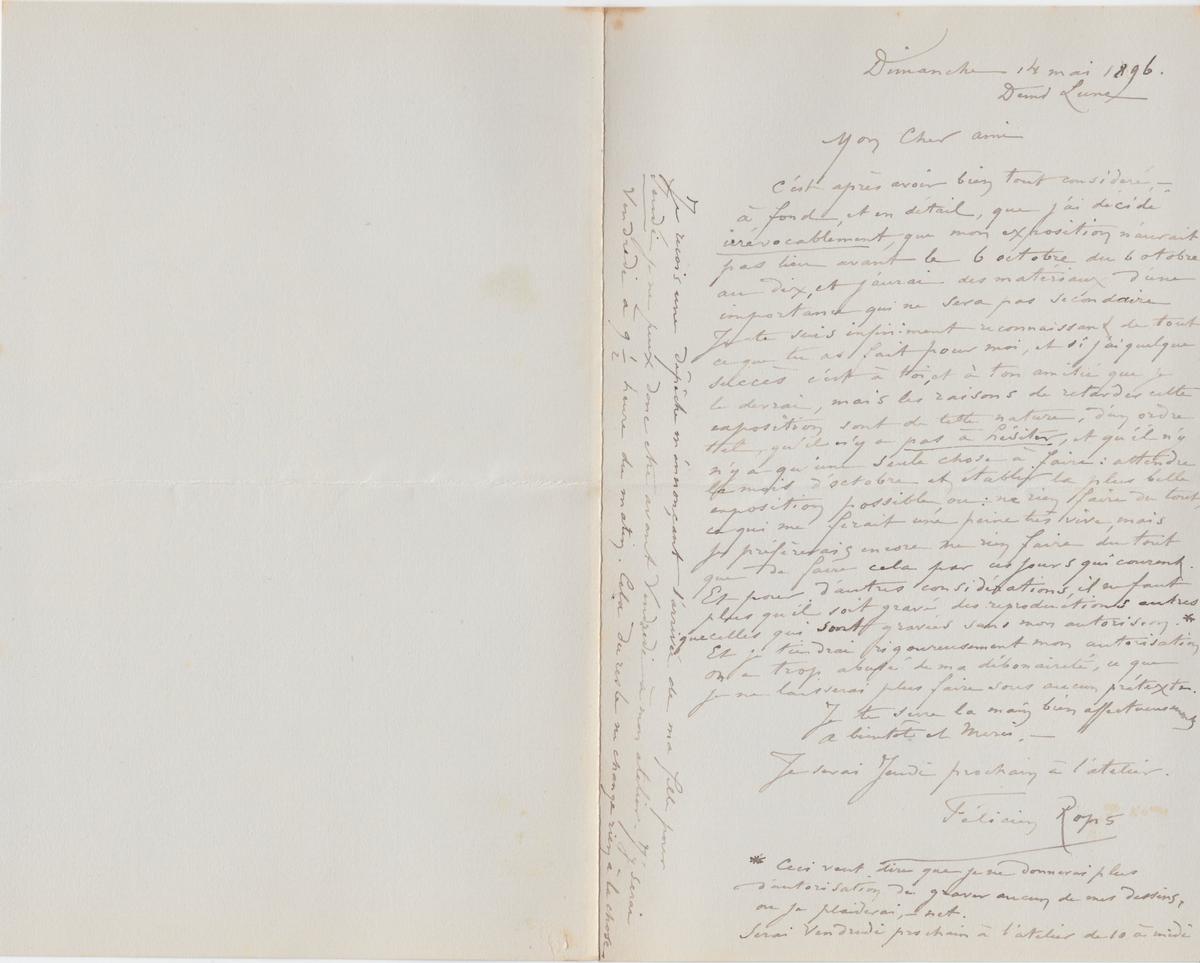 Dimanche 14 mai 1896.
Demi Lune
Mon Cher ami
C'est après avoir bien tout consideré, –
à fond, et en détail, que j'ai décidé
irrévocablement, que mon exposition n'aurait
pas lieu avant le 6 octobre du 6 otobre
au dix, et j'aurai des matériaux d'une
importance qui ne sera pas secondaire
Je te suis infiniment reconnaissant de tout
ce que tu as fait pour moi, et si j'ai quelque
succès c'est à toi, et à ton amitié que je
le devrai, mais les raisons de retarder cette
exposition sont de telle nature, d'un ordre
tel, qu'il n'y a pas à hésiter, et qu'il n'y
n'y a qu'une seule chose à faire : attendre
le mois d'octobre et établir la plus belle
exposition possible, ou : ne rien faire du tout,
ce qui me ferait une peine très vive, mais
je préfèrerais encore ne rien faire du tout
que de faire cela par ces jours qui courent.
Et pour d'autres considérations, il en faut
plus qu'il soit gravé des reproductions autres
que celles qui sont gravées sans mon autorision. *
Et je tiendrai rigoureusement mon autorisation
on a trop abusé de ma débonaireté, ce que
je ne laisserai plus faire sous aucun prétexte.
Je te serre la main bien affectueusement
a bientôt et Merci. –
Je serai Jeudi prochain à l'atelier.
Félicien Rops
* Ceci veut dire que je ne donnerai plus
d'autorisation de graver aucun de mes dessins,
ou je plaiderai, – net.
Serai Vendredi prochain à l'atelier de 10 à midi
Je reçois une dépêche m'annonçant l'arrivée de ma fille pour
Jeudi, je ne peux donc etre avant Vendredi à mon atelier. J'y serai
Vendredi à 9 1/2 heure du matin. Cela du reste ne change rien à la chose –